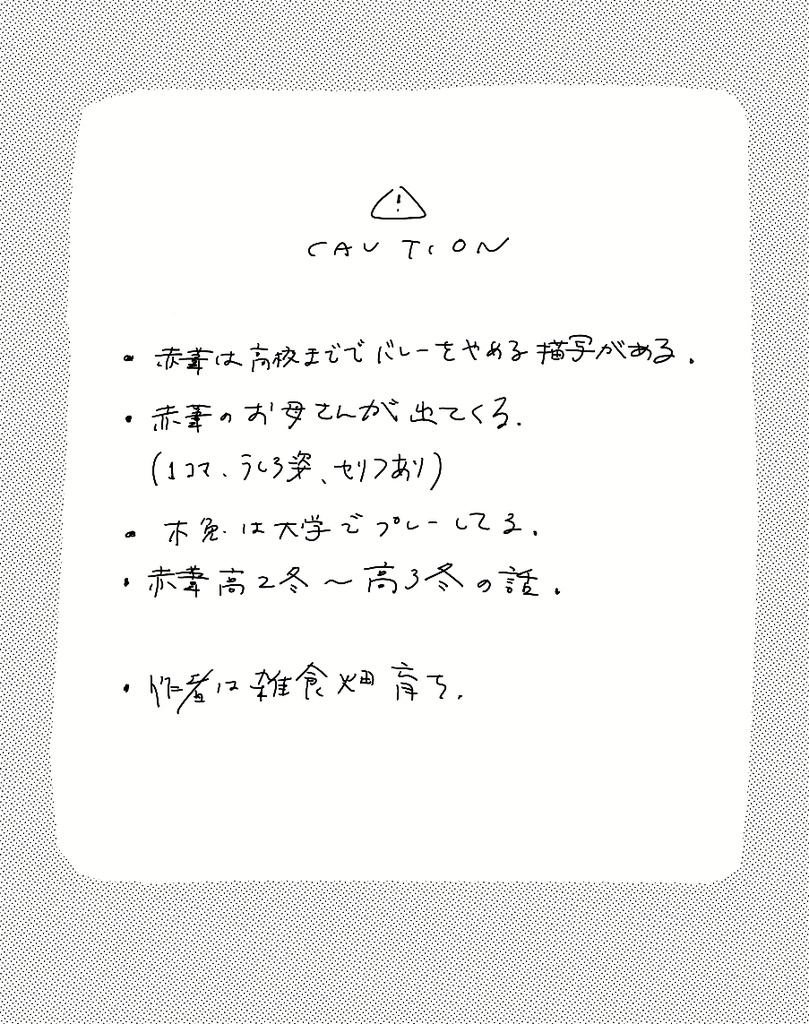 !
CAUTION
・赤葦は高校まででバレーをやめる描写がある.
・赤葦のお母さんが出てくる.
(1コマ、うしろ姿、セリフあり)
・木兎は大学でプレーしてる.
・赤葦高2冬〜高3冬の話.
・作者は雑食畑育ち.